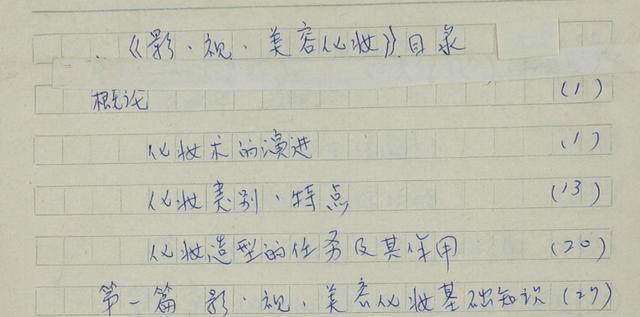 《影·视·美容化妆》目录
概论 (1)
化妆术的演进 (1)
化妆类别·特点 (13)
化妆造型的任务及其作用 (20)
第一篇 影·视·美容化妆基础知识 (27)